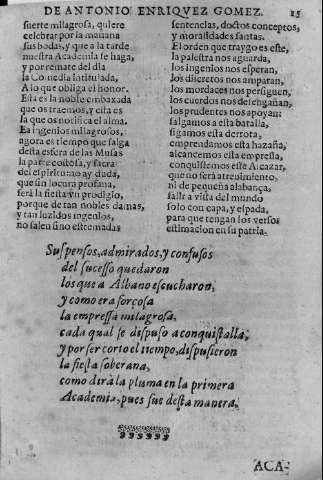 DE ANTONIO ENRIQVEZ GOMEZ. 15
suerte milagrosa, quiere
celebrar por la mañana
sus bodas, y que a la tarde
nuestra Academia se haga,
y por remate del dia
la Comedia intitulada,
A lo que obliga el honor.
Esta es la noble embaxada
que os traemos, y esta es
la que os notifica el alma.
Ea ingenios milagrosos,
agora es tiempo que salga
desta esfera de las Musas
la parte costosa, y sacra
del espiritu no ayuda,
que sin locura profana,
será la fiesta vn prodigio,
porque de tan nobles damas,
y tan luzidos ingenios,
no salen sino estremadas
sentencias, doctos conceptos,
y moralidades santas.
El orden que traygo es este,
la palestra nos aguarda,
los ingenios nos esperan,
los discretos nos amparan,
los mordaces nos persiguen,
los cuerdos nos desengañan,
los prudentes nos apoyan;
salgamos a esta batalla,
sigamos esta derrota,
emprendamos esta hazaña,
alcancemos esta empressa,
conquistemos este Alcazar,
que no será atreuimiento,
ni de pequeña alabança,
salir a vista del mundo
solo con capa, y espada,
para que tengan los versos
estimacion en su patria.
Suspensos, admirados, y confusos
del sucesso quedaron
los que a Albano escucharon,
y como era forçosa
la empressa milagrosa,
cada qual se dispuso a conquistalla;
y por ser corto el tiempo, dispusieron
la fiesta soberana,
como dirà la pluma en la primera
Academia, pues fue desta manera.
ACA-